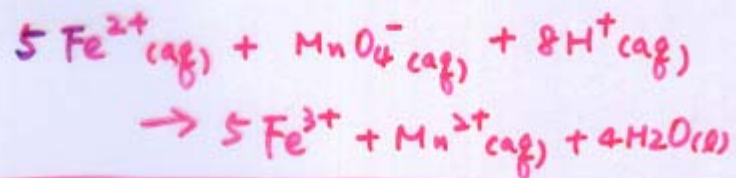 5 Fe²⁺(aq) + MnO₄⁻(aq) + 8H⁺(aq)
→ 5 Fe³⁺ + Mn²⁺(aq) + 4H2O(l)